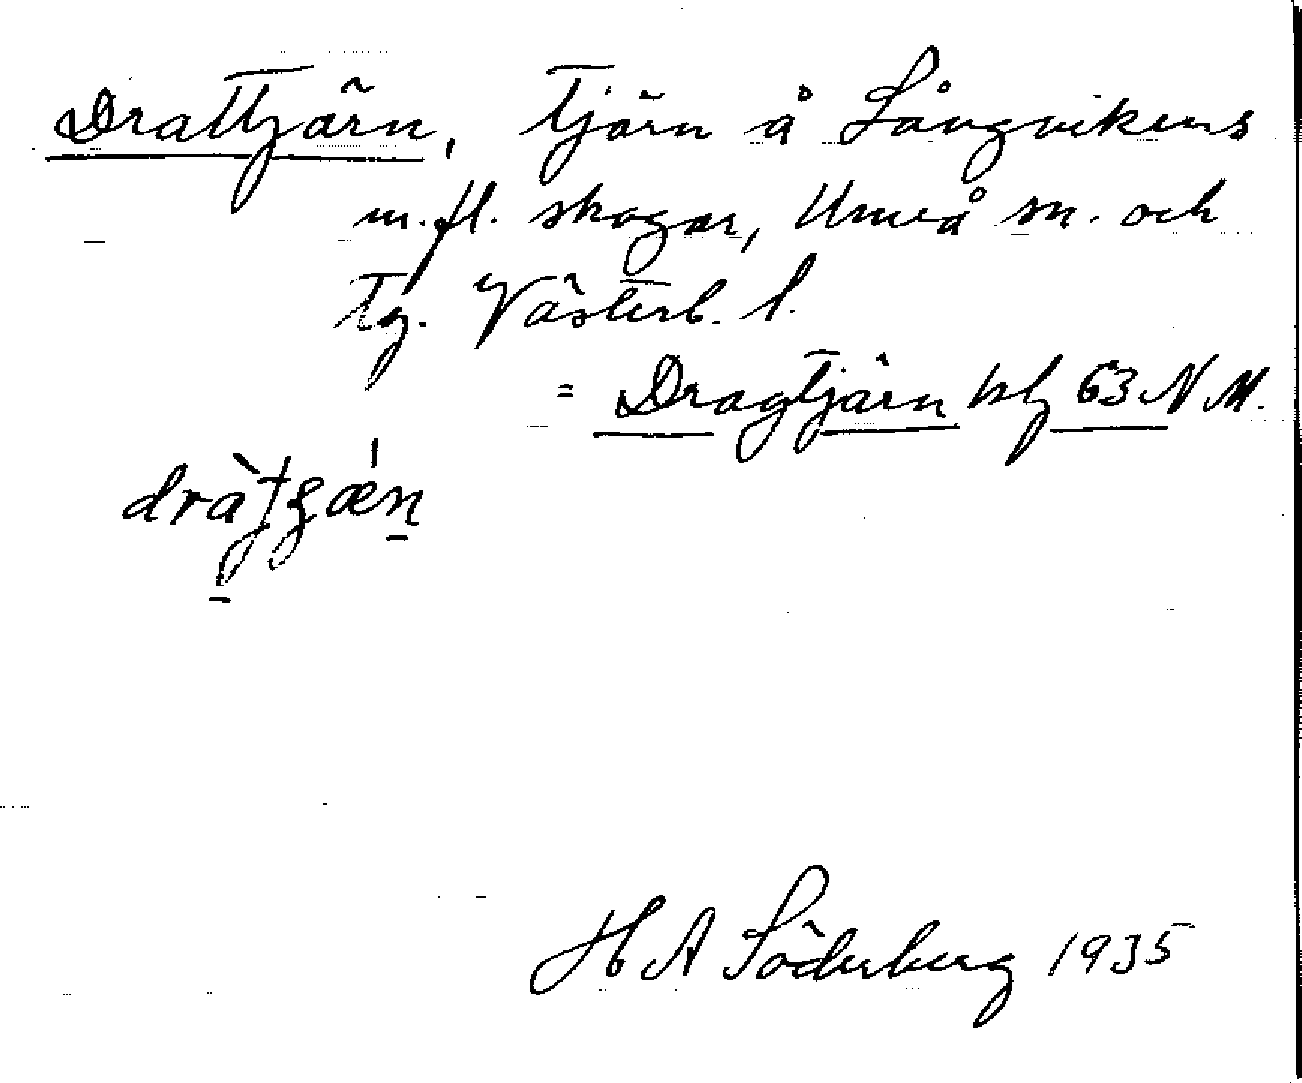 Drattjärn, tjärn å Långvikens
m.fl. skogar, Umeå sn. och
tg. Västerb. l.
= Dragtjärn kbl 63 N M.
H A Söderberg 1935